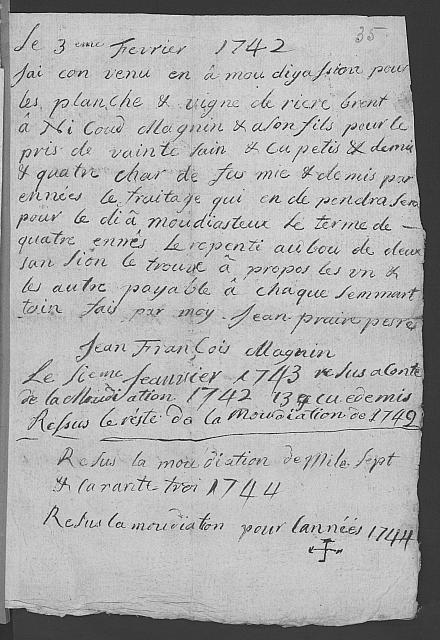 35
Le 3 eme Fevrier 1742
Jai con venu en â moudiyassion pour
les planche & vigne de riere brent
â Ni Coud Magnin & a son fils pour le
pris de vainte sain & Cu petis & demis
& quatre char de feu mie & demis par
ennées le fraitage qui en de pendra sera
pour le di â moudiasteux Le terme de
quatre ennés Le repenti au bou de deux
san sion le trouve â propos les vn &
les autre payable â chaque Semmart
tain fais par moy. Jean praire peres
Jean François Magnin
Le Sieme Jeanvier 1743 resus a Conte
de la Moudiation 1742 13 cu edemis
Ressus le réste da la moudiation de 1742
Resus la moudiation de Mile Sept
& Carante troi 1744
Resus la moudiation pour Lannéés 1744